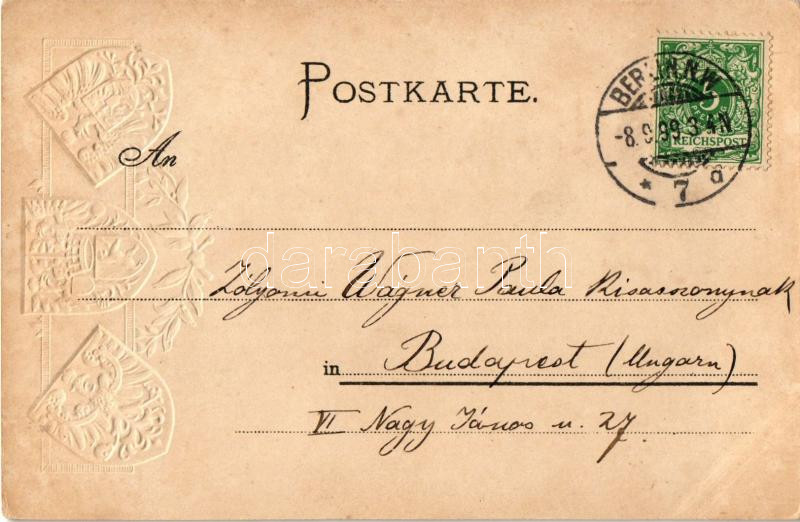 POSTKARTE.
BERLIN N.W.
-8.9.99.3-4N
* 7 a
5
REICHSPOST
An
darabanth
Zólyomi Wagner Paula Kisasszonynak
in Budapest (Ungarn)
VI Nagy János u. 27.